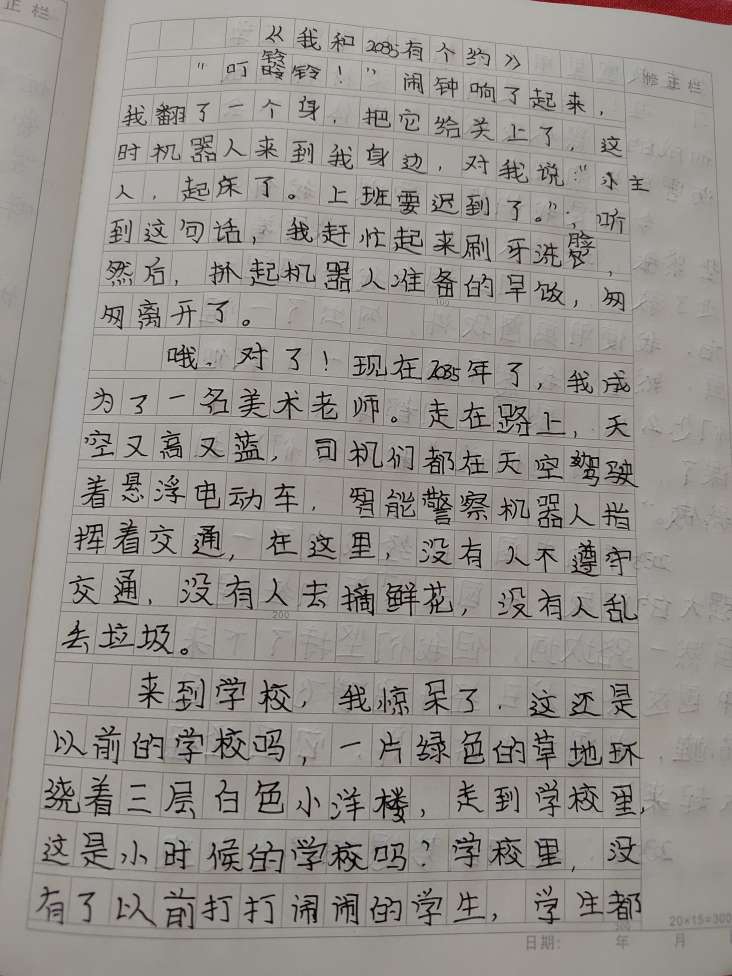 正栏
《我和2035有个约》
修正栏
“叮铃铃！”闹钟响了起来，
我翻了一个身，把它给关上了，这
时机器人来到我身边，对我说：“小主
人，起床了。上班要迟到了。”，听
到这句话，我赶忙起来刷牙洗脸，
然后，抓起机器人准备的早饭，匆
匆离开了。
哦．对了！现在2035年了，我成
为了一名美术老师。走在路上，天
空又高又蓝，司机们都在天空驾驶
着悬浮电动车，智能警察机器人指
挥着交通，在这里，没有人不遵守
交通，没有人去摘鲜花，没有人乱
丢垃圾。
200
来到学校，我惊呆了．这还是
以前的学校吗，一片绿色的草地环
绕着三层白色小洋楼，走到学校里，
这是小时候的学校吗？学校里，没
有了以前打打闹闹的学生，学生都
20×15=300
日期： 年 月